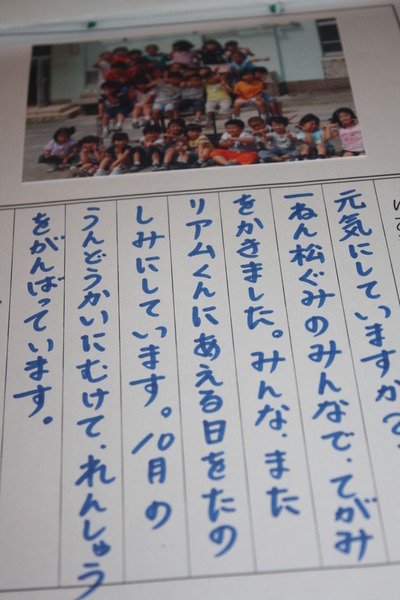 元気にしていますか?
一ねん松ぐみのみんなで、てがみ
をかきました。みんな、また
リアムくんにあえる日をたの
しみにしています。10月の
うんどうかいにむけて、れんしゅう
をがんばっています。